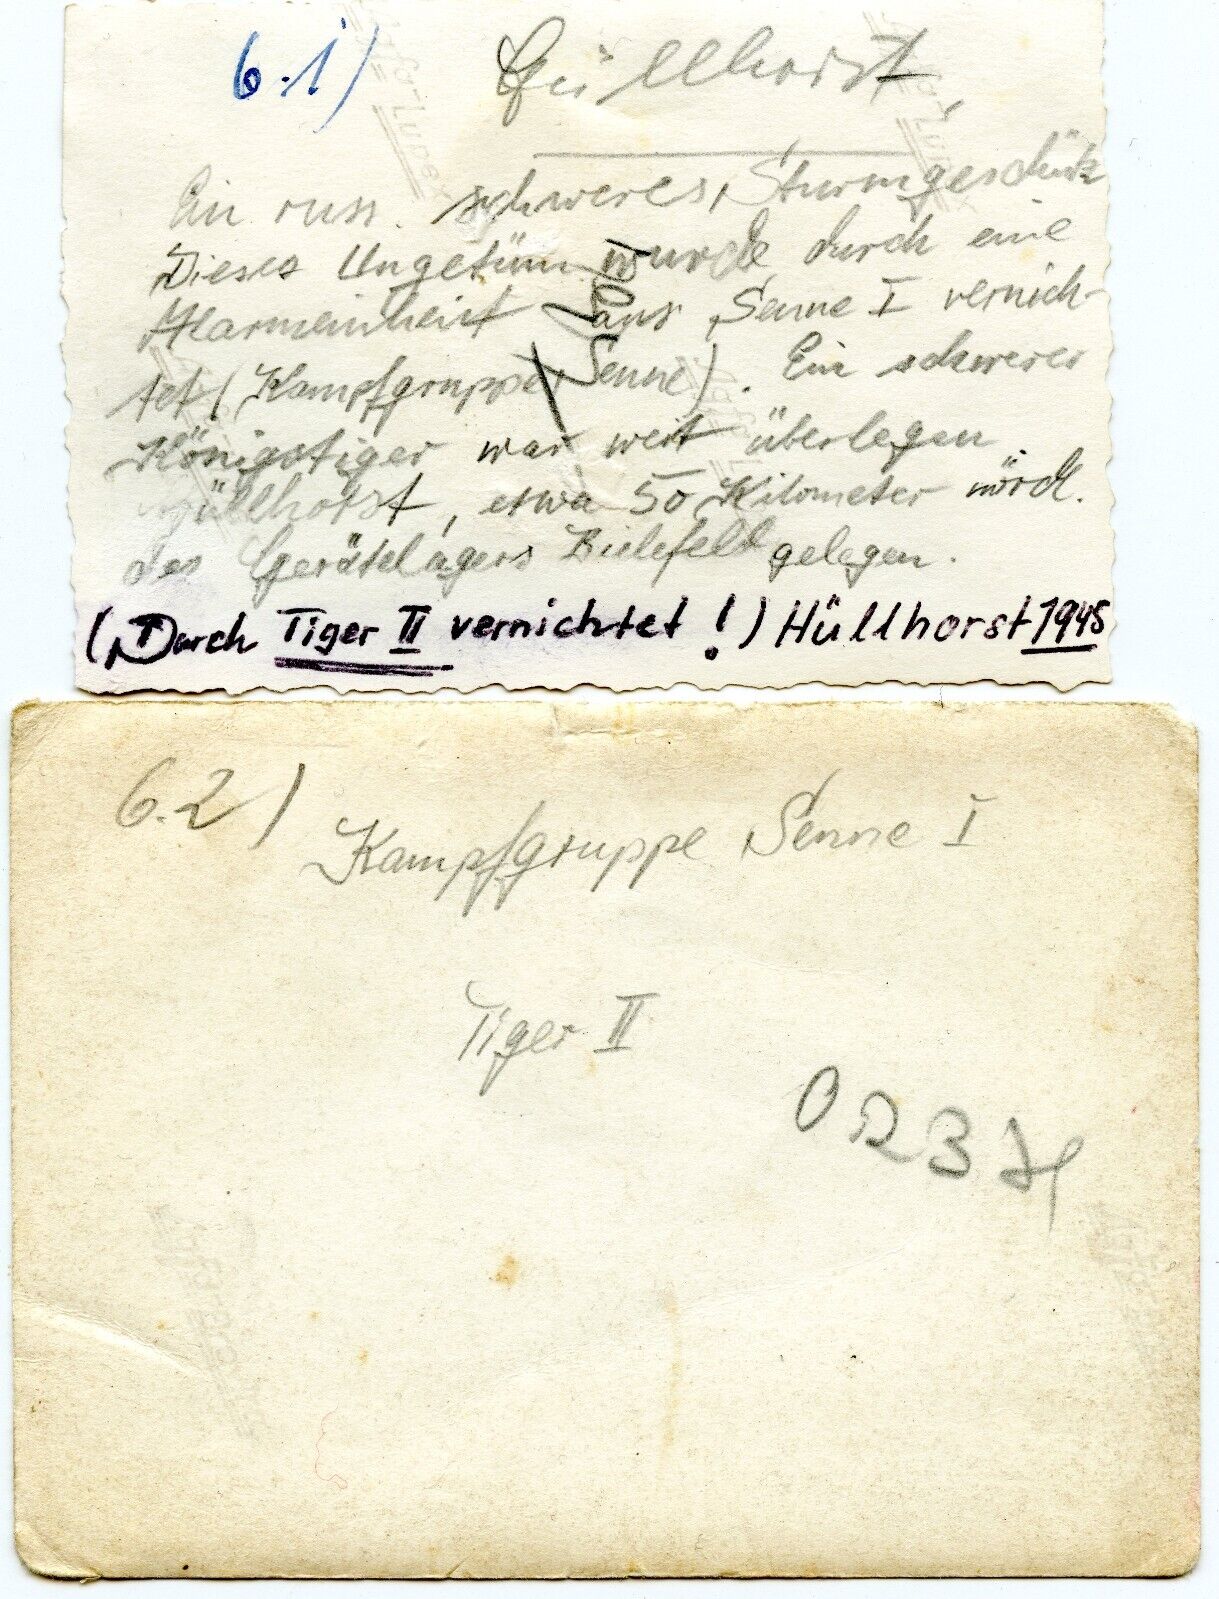 6.1)
Güllhorst,
Ein russ. schweres, Sturmgeschütz
Dieses Ungetüm wurde durch eine
Alarmeinheit aus Senne I vernich-
tet (Kampfgruppe Senne). Ein schwerer
Königstiger war weit überlegen
Güllhorst, etwa 50 Kilometer nördl.
des Gerätelagers Bielefeld gelegen.
(Durch Tiger II vernichtet!) Hüllhorst 1945
6.2)
Kampfgruppe Senne I
Tiger II